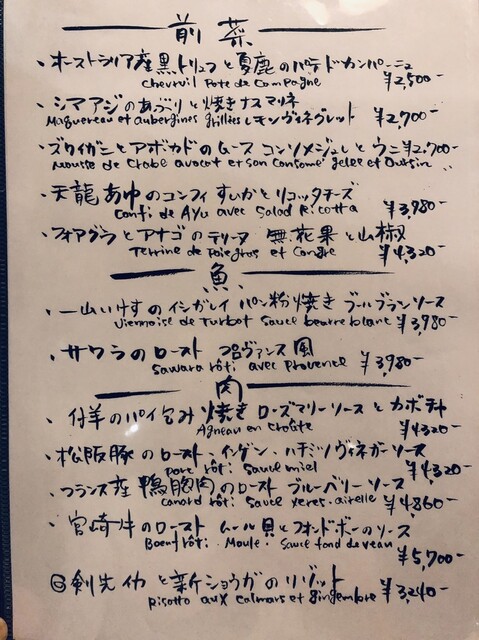 前菜
・オーストラリア産黒トリュフと夏鹿のパテドカンパーニュ
Chevruil Pate de Compagne ¥2,500-
・シマアジのあぶりと焼きナスマリネ
Maquereau et aubergines grillées レモンヴィネグレット ¥2,700-
・ズワイガニとアボカドのムース コンソメジュレとウニ ¥2,700-
Mousse de Crabe avocat et son consomé gelée et Oursin
・天龍あゆのコンフィ すいかとリコッタチーズ
Confi de Ayu avec Salad Ricotta ¥3,980-
・フォアグラとアナゴのテリーヌ 無花果と山椒
Terrine de foiegras et Congre ¥4,320-
魚
・一山いけすのイシガレイ パン粉焼き ブールブランソース
Viennoise de Turbot Sauce beurre blanc ¥3,980-
・サワラのロースト プロヴァンス風
Sawara rôti avec Provence ¥3,980-
肉
・仔羊のパイ包み焼き ローズマリーソースとカボチャ
Agneau en Croûte ¥4320-
・松阪豚のロースト、インゲン・ハチミツヴィネガーソース
porc rôti Sauce miel ¥4,320-
・フランス産鴨胸肉のロースト ブルーベリーソース
Canard rôti Sauce Xeres airelle ¥4,860-
・宮崎牛のロースト ムール貝とフォンドボーのソース
Boeuf rôti・Moule・Sauce fond de veau
¥5,700-
剣先イカと新ショウガのリゾット
Risotto aux Calmars et gingembre ¥3,240-